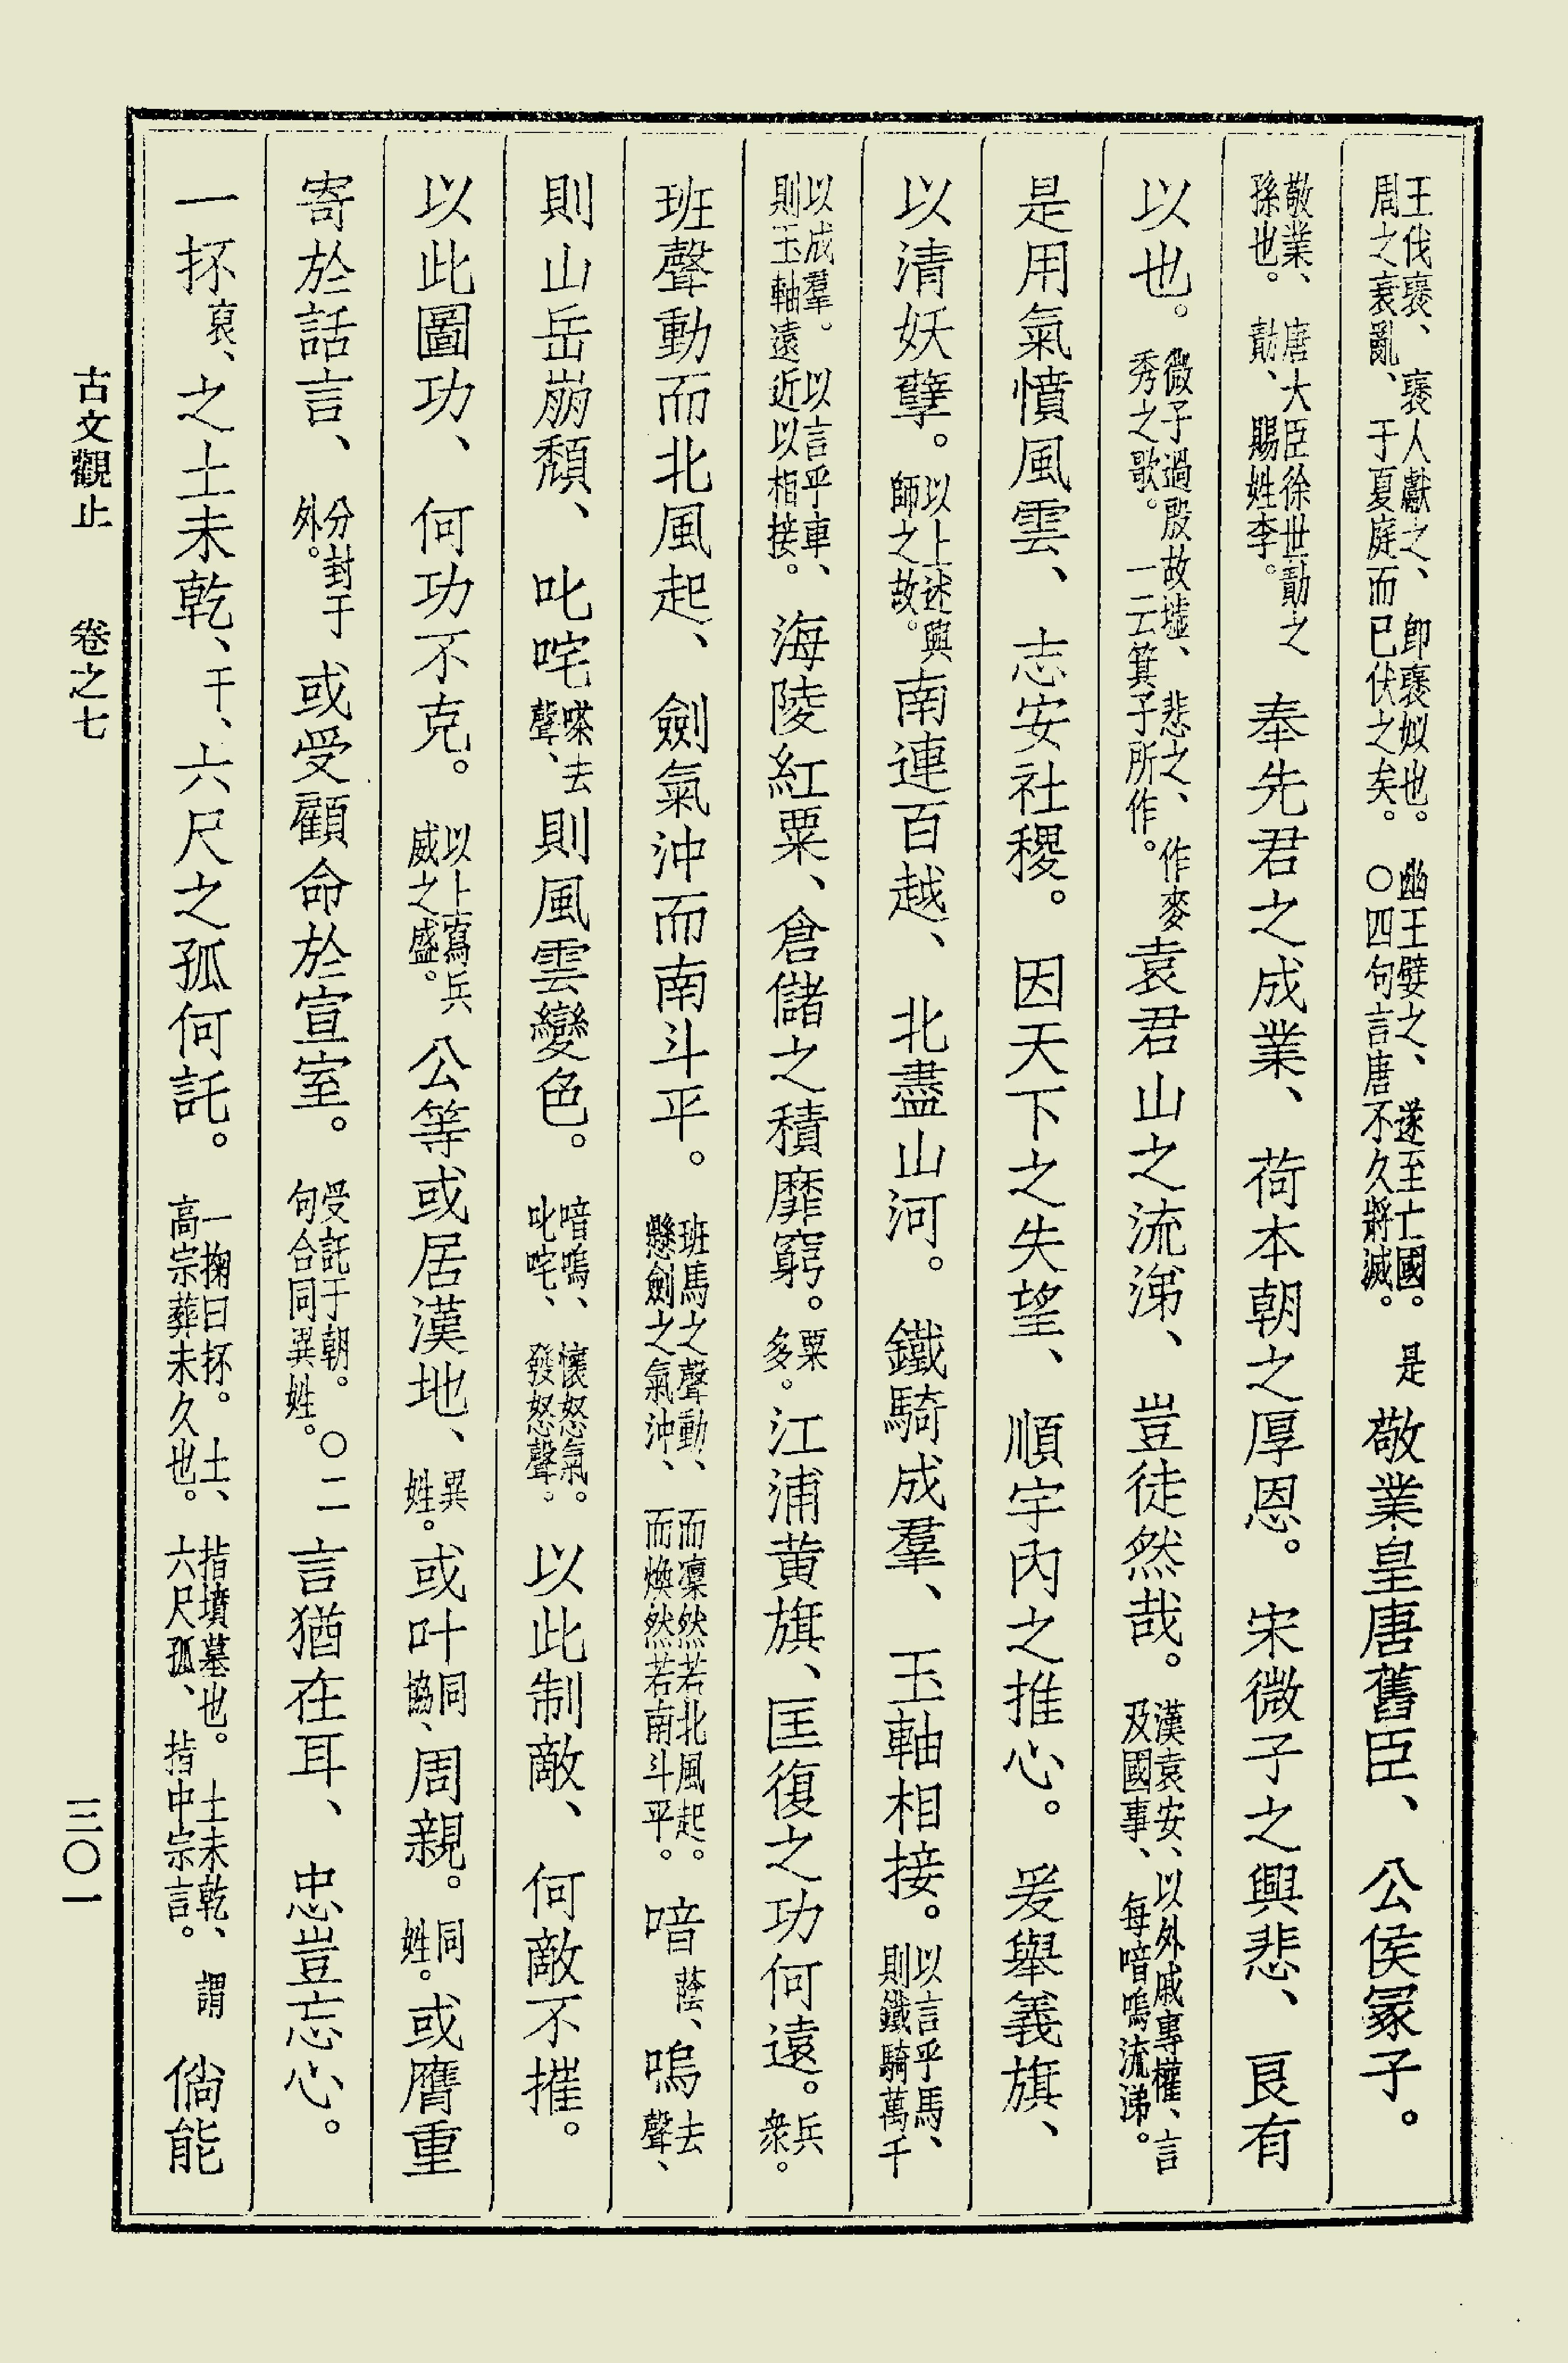 王伐褒、褒人獻之、卽褒姒也。幽王嬖之、遂至亡國。是周之衰亂、于夏庭而已伏之矣。〇四句言唐不久將滅。敬業皇唐舊臣、公侯冢子。
敬業、唐大臣徐世勣之孫也。勣、賜姓李。奉先君之成業、荷本朝之厚恩。宋微子之興悲、良有
以也。微子過殷故墟、悲之、作麥秀之歌。一云箕子所作。袁君山之流涕、豈徒然哉。漢袁安、以外戚專權、言及國事、每喑嗚流涕。
是用氣憤風雲、志安社稷。因天下之失望、順宇內之推心。爰舉義旗、
以清妖孽。以上述興師之故。南連百越、北盡山河。鐵騎成羣、玉軸相接。以言乎馬、則鐵騎萬千
以成羣。以言乎車、則玉軸遠近以相接。海陵紅粟、倉儲之積靡窮。粟多。江浦黃旗、匡復之功何遠。兵衆。
班聲動而北風起、劍氣沖而南斗平。班馬之聲動、而凜然若北風起。懸劍之氣沖、而煥然若南斗平。喑蔭、嗚去聲、
則山岳崩頹、叱咤嗏去聲、則風雲變色。喑嗚、懷怒氣。叱咤、發怒聲。以此制敵、何敵不摧。
以此圖功、何功不克。以上寫兵威之盛。公等或居漢地、異姓。或叶同協、周親。同姓。或膺重
寄於話言、分封于外。或受顧命於宣室。受託于朝。〇二句合同異姓。言猶在耳、忠豈忘心。
一抔裒、之土未乾、干、六尺之孤何託。一掬曰抔。土、指墳墓也。土未乾、謂高宗葬未久也。六尺孤、指中宗言。倘能
古文觀止　卷之七　三〇一